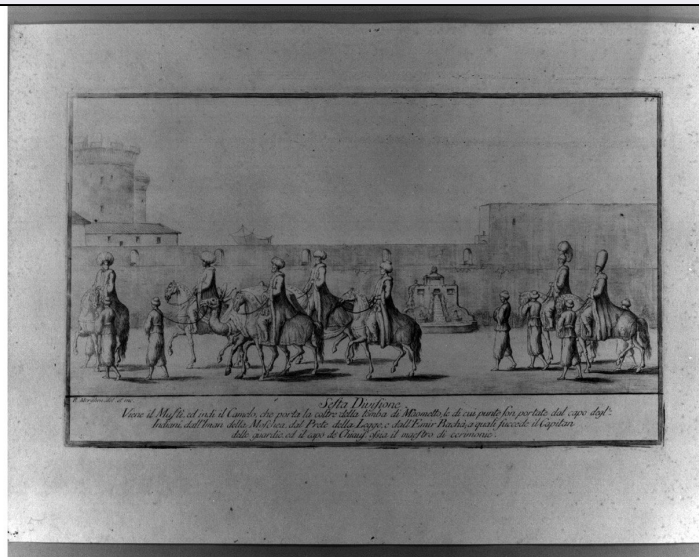 Sesta Divisione
Viene il Mufti, ed indi il Camelo, che porta la coltre della tomba di Maometto, le di cui punte son portate dal capo degl'
Indiani, dall'Iman della Moschea, dal Prete della Legge, e dall'Emir Bachà, a quali succede il Capitan
delle guardie, ed il capo de Chiaus, ossia il maestro di cerimonie.